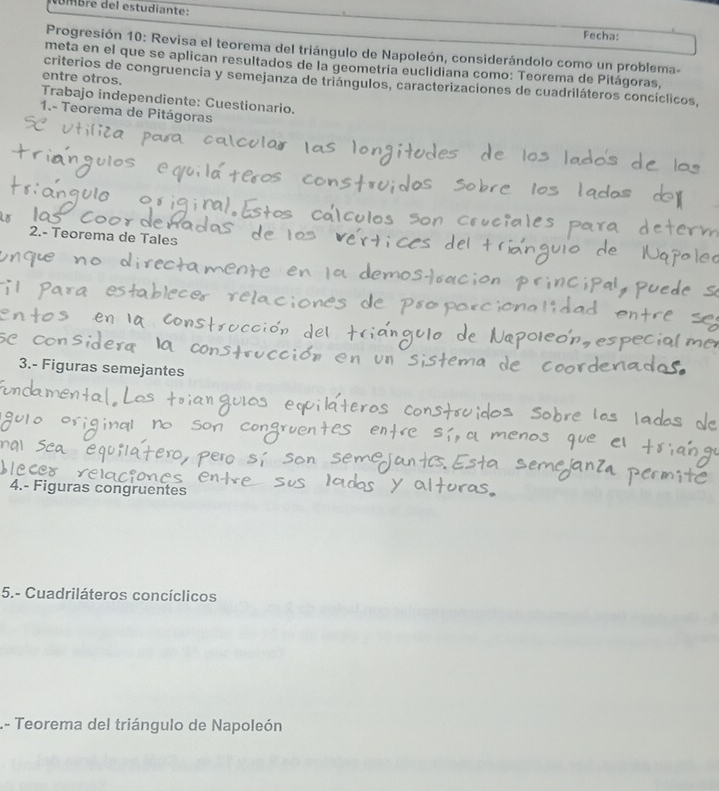 Nombre del estudiante:
Fecha:
Progresión 10: Revisa el teorema del triángulo de Napoleón, considerándolo como un problema-
meta en el que se aplican resultados de la geometría euclidiana como: Teorema de Pitágoras,
criterios de congruencia y semejanza de triángulos, caracterizaciones de cuadriláteros concíclicos,
entre otros.
Trabajo independiente: Cuestionario.
1.- Teorema de Pitágoras
se utiliza para calcular las longitudes de los lados de los
triángulos equiláteros construidos sobre los lados del
triángulo original. Estos cálculos son cruciales para determ
las coordenadas de los vértices del triángulo de Napoleo
2.- Teorema de Tales
unque no directamente en la demostracion principal, puede s
til para establecer relaciones de proporcionalidad entre seg
entos en la construcción del triángulo de Napoleón, especialmen
se considera la construcción en un sistema de coordenadas.
3.- Figuras semejantes
fundamental. Los triangulos equiláteros construidos sobre los lados de
gulo original no son congruentes entre sí, a menos que el triangu
nal sea equilátero, pero sí son semejantes. Esta semejanza permite
blecer relaciones entre sus lados y alturas.
4.- Figuras congruentes
5.- Cuadriláteros concíclicos
.- Teorema del triángulo de Napoleón